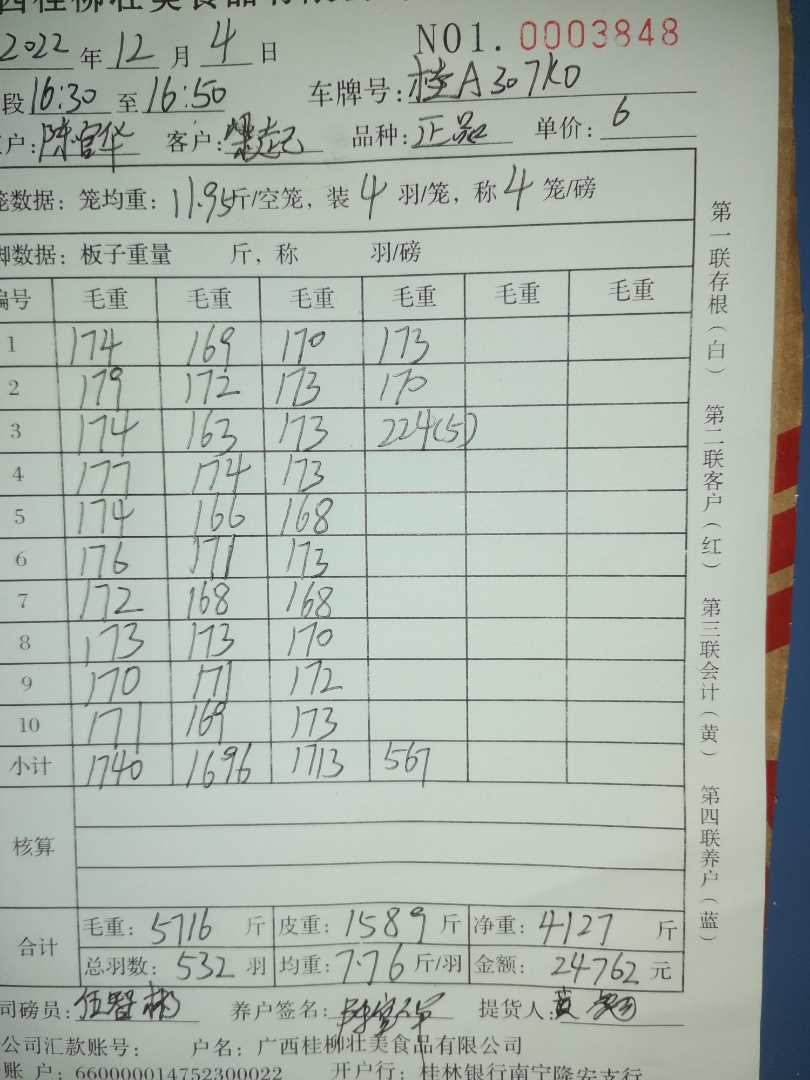 西桂柳壮美食品有限公
2022 年 12 月 4 日 NO1. 0003848
段 16:30 至 16:50 车牌号: 桂A307K0
户: 陈官华 客户: 品种: 正品 单价: 6
笼数据: 笼均重: 11.95斤/空笼, 装 4 羽/笼, 称 4 笼/磅
脚数据: 板子重量 斤, 称 羽/磅
编号 毛重 毛重 毛重 毛重 毛重 毛重
1 174 169 170 173
2 179 172 173 170
3 174 163 173 224(5)
4 177 174 173
5 174 166 168
6 176 171 173
7 172 168 168
8 173 173 170
9 170 171 172
10 171 169 173
小计 1740 1696 1713 567
核算
合计 毛重: 5716 斤 皮重: 1589 斤 净重: 4127 斤
总羽数: 532 羽 均重: 7.76 斤/羽 金额: 24762 元
司磅员: 伍智彬 养户签名: 提货人: 黄
公司汇款账号: 户名: 广西桂柳壮美食品有限公司
账 户: 660000014752300022 开户行: 桂林银行南宁隆安支行
第一联存根(白) 第二联客户(红) 第三联会计(黄) 第四联养户(蓝)